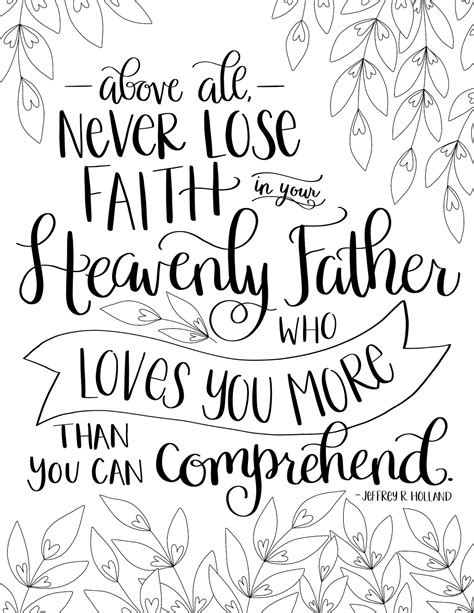 — above all, —
NEVER LOSE
FAITH in your
Heavenly Father
WHO
LOVES YOU MORE
THAN
YOU CAN comprehend.
- JEFFREY R. HOLLAND